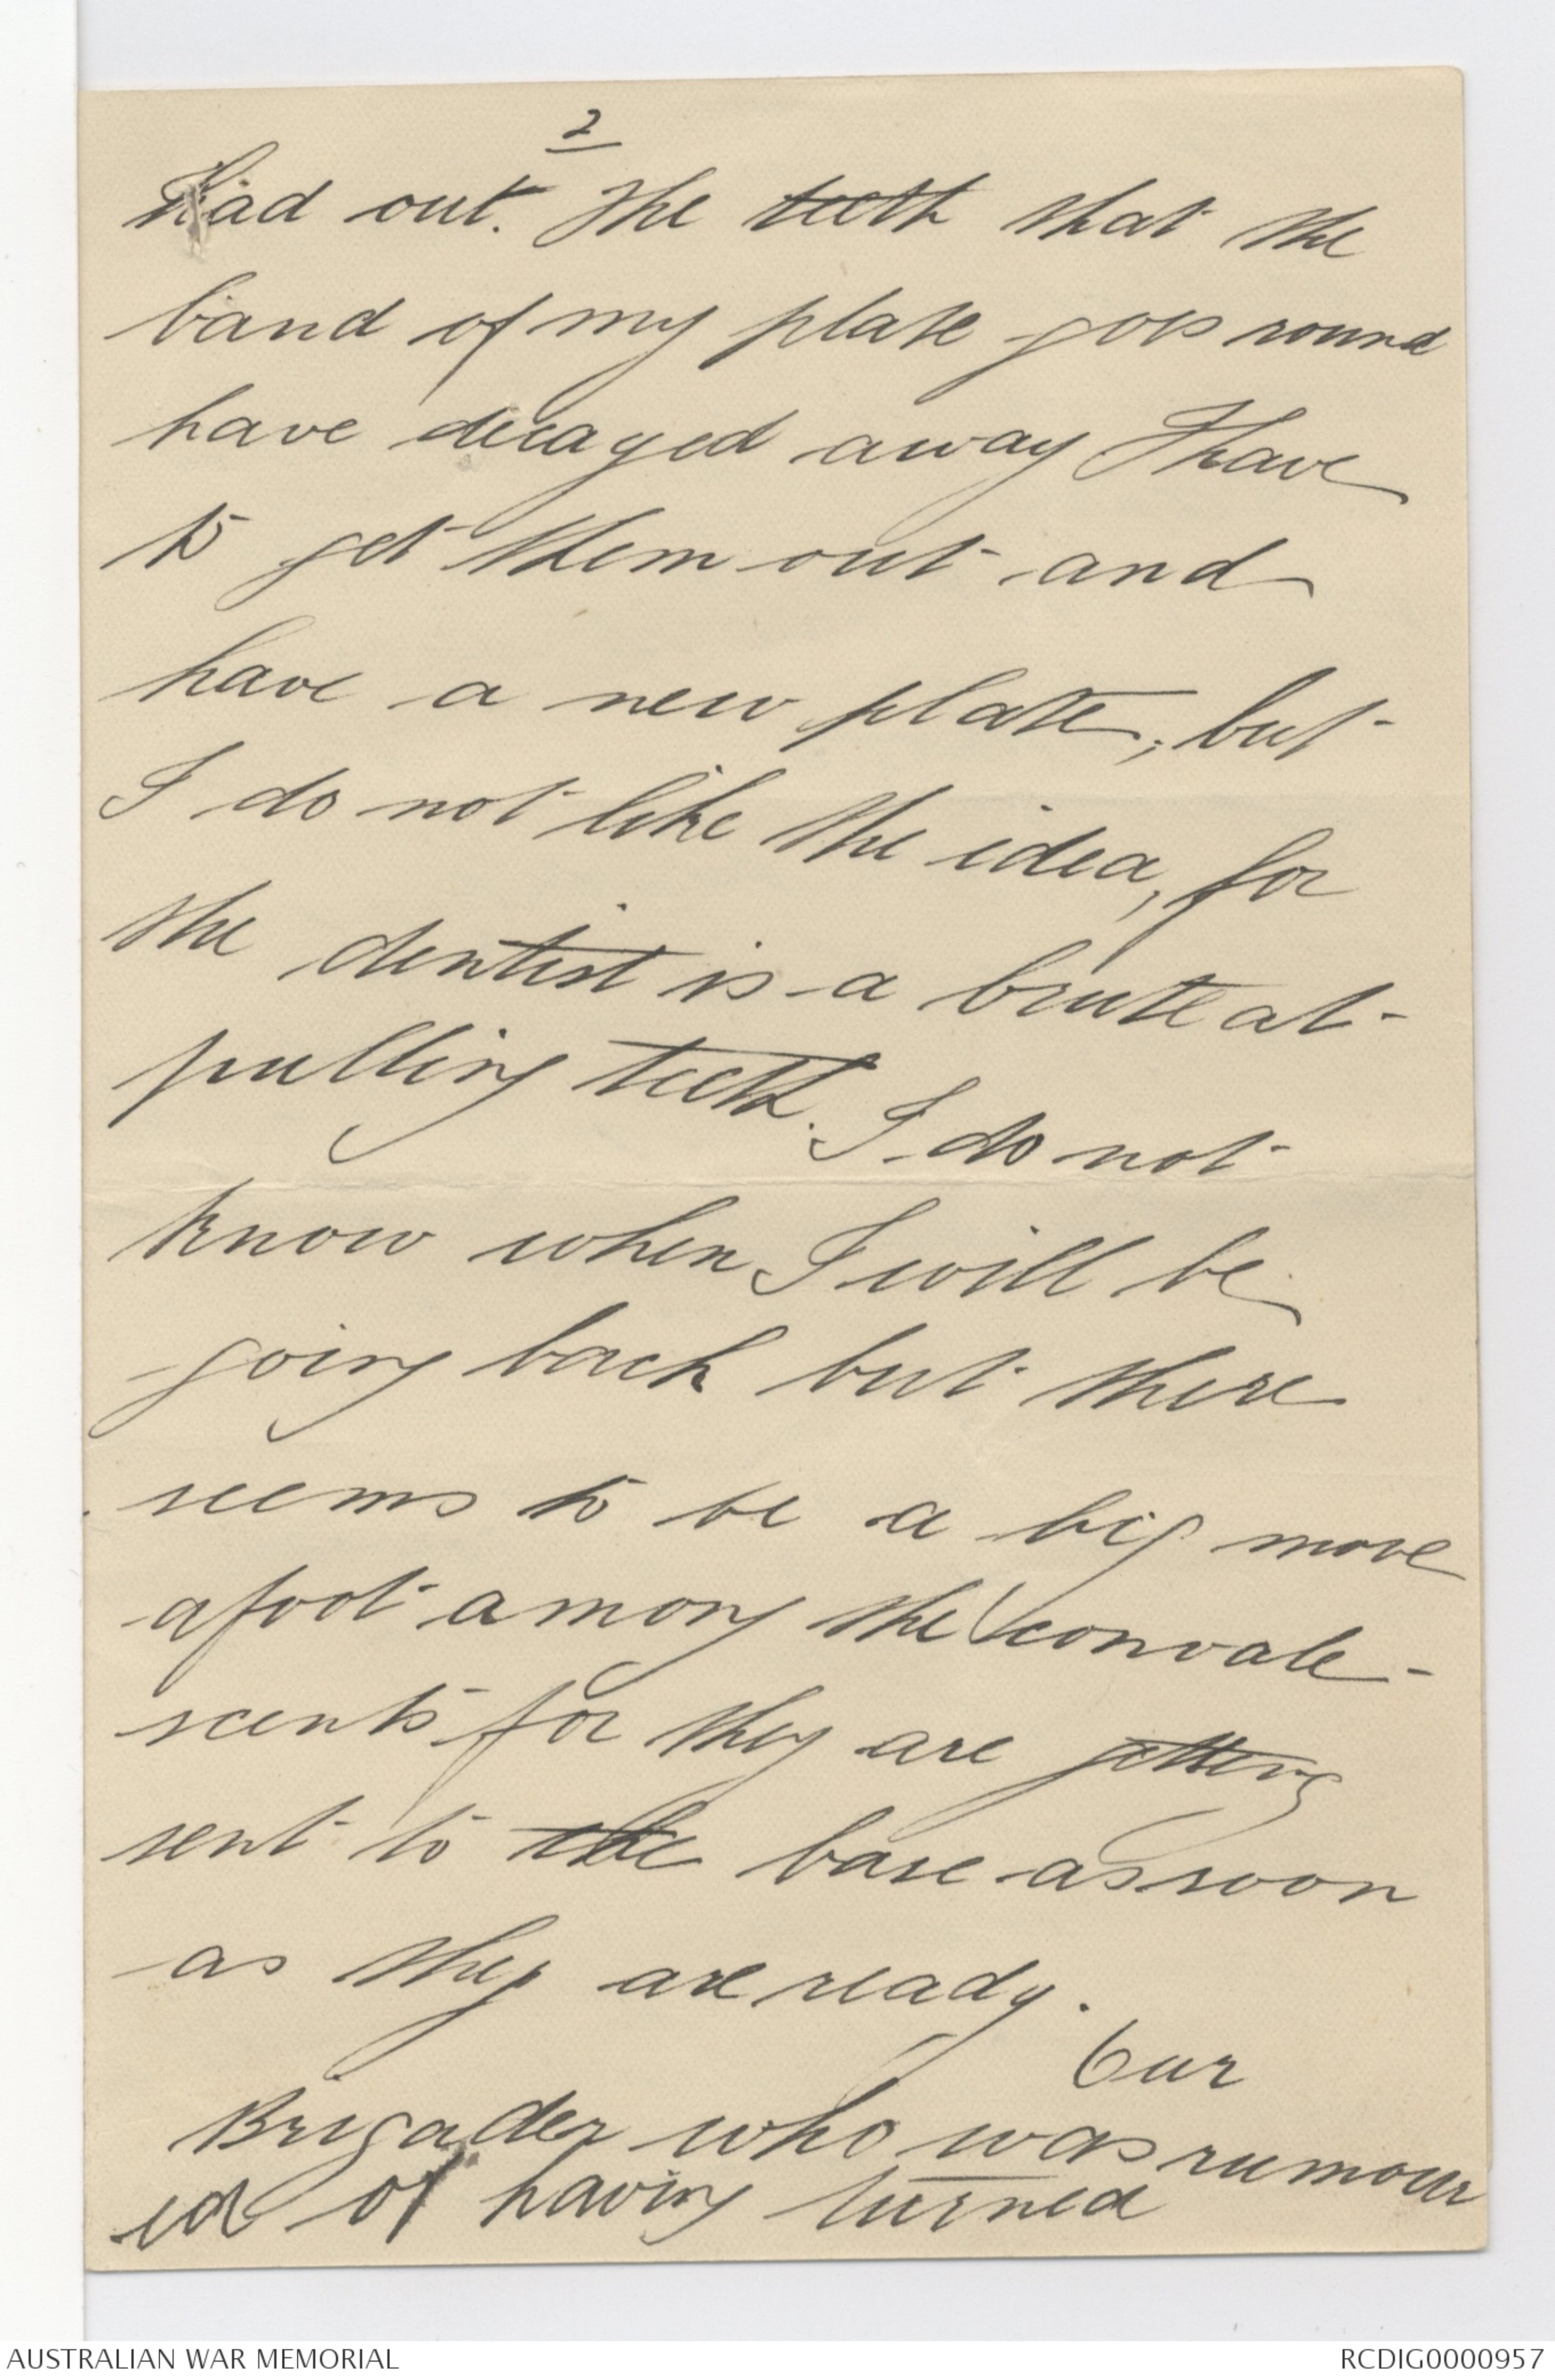 2
had out. The teeth that the
band of my plate goes round
have decayed away I have
to get them out and
have a new plate, but
I do not like the idea, for
the dentist is a brute at
pulling teeth. I do not
know when I will be
going back but there
seems to be a big move
afoot among the convale-
scents for they are getting
sent to the base as soon
as they are ready.
Our
Brigader who was rumour
ed of having turned
AUSTRALIAN WAR MEMORIAL
RCDIG0000957